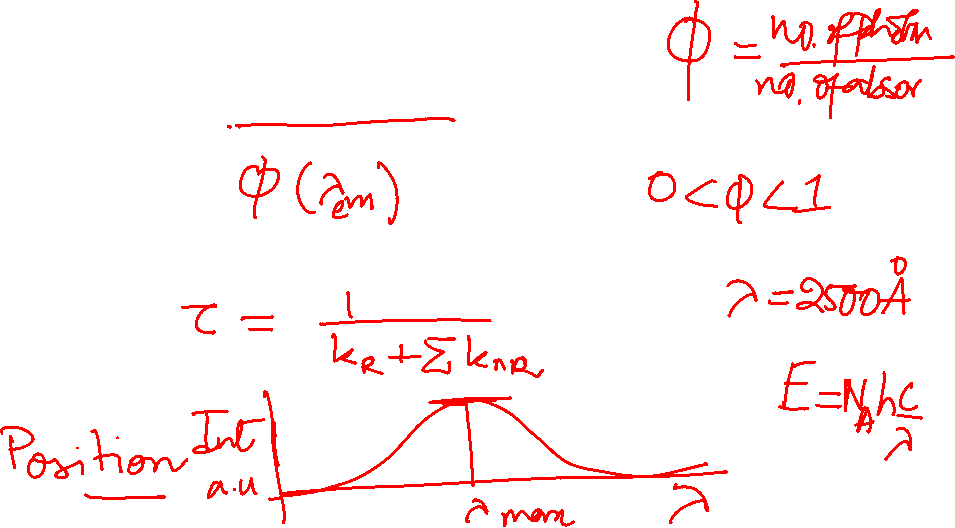 ϕ = no. of photon / no. of absor
ϕ (λem)
0 < ϕ < 1
λ = 2500 Å
τ = 1 / (kR + Σ knR)
E = NA h c / λ
Position
Int
a.u
λ max
λ